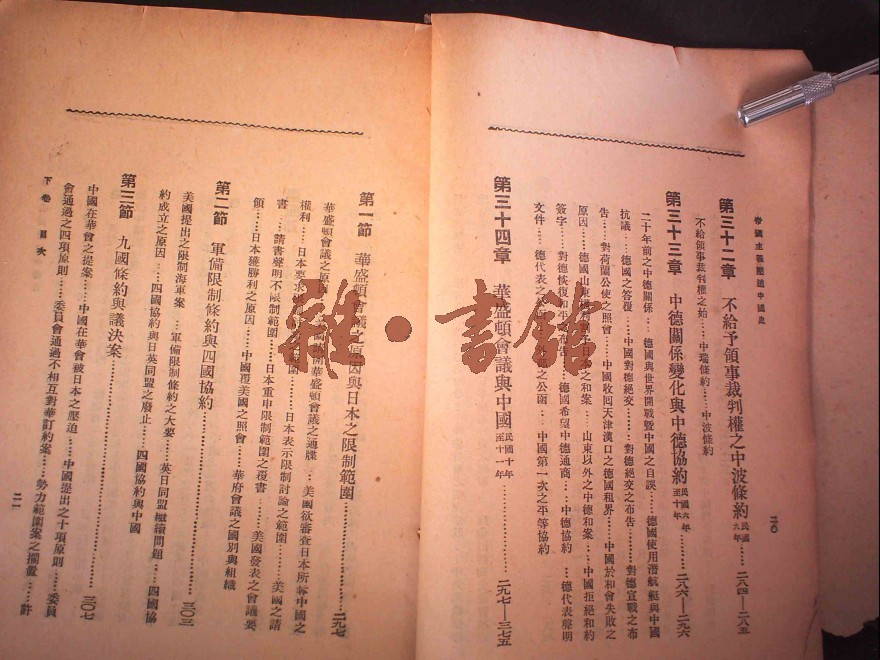 帝國主義壓迫中國史
二〇
第三十二章 不給予領事裁判權之中波條約 民國九年……二八四—二八五
不給領事裁判權之始……中瑞條約……中波條約
第三十三章 中德關係變化與中德協約 民國六年至十年……二八六—二九六
二十年前之中德關係……德國與世界開戰暨中國之自誤……德國使用潛航艇與中國
抗議……德國之答覆……中國對德絕交……對德絕交之布告……對德宣戰之布
告……對荷蘭公使之照會……中國收回天津漢口之德國租界……中國於和會失敗之
原因……德國山東 日本之和案……山東以外之中德和案……中國拒絕和約
簽字……對德恢復和平之布告……德國希望中德通商……中德協約……德代表聲明
文件……德代表之公函 之公函……中國第一次之平等協約
第三十四章 華盛頓會議與中國 民國十年至十一年……二九七—三七五
第一節 華盛頓會議之原因與日本之限制範圍……二九七
華盛頓會議之原 開華盛頓會議之通牒……美國欲審查日本所奪中國之
權利……日本要求 範圍……日本表示限制討論之範圍……美國之請
書……請書聲明不限制範圍……日本重申限制範圍之覆書……美國發表之會議要
領……日本獲勝利之原因……中國覆美國之照會……華府會議之國別與組織
第二節 軍備限制條約與四國協約……三〇三
美國提出之限制海軍案……軍備限制條約之大要……英日同盟繼續問題……四國協
約成立之原因……四國協約與日英同盟之廢止……四國協約與中國
第三節 九國條約與議決案……三〇七
中國在華會之提案……中國在華會被日本之壓迫……中國提出之十項原則……委員
會通過之四項原則……委員會通過不相互對華訂約案……勢力範圍案之擱置……許
下卷 目次
二一
雜·書館